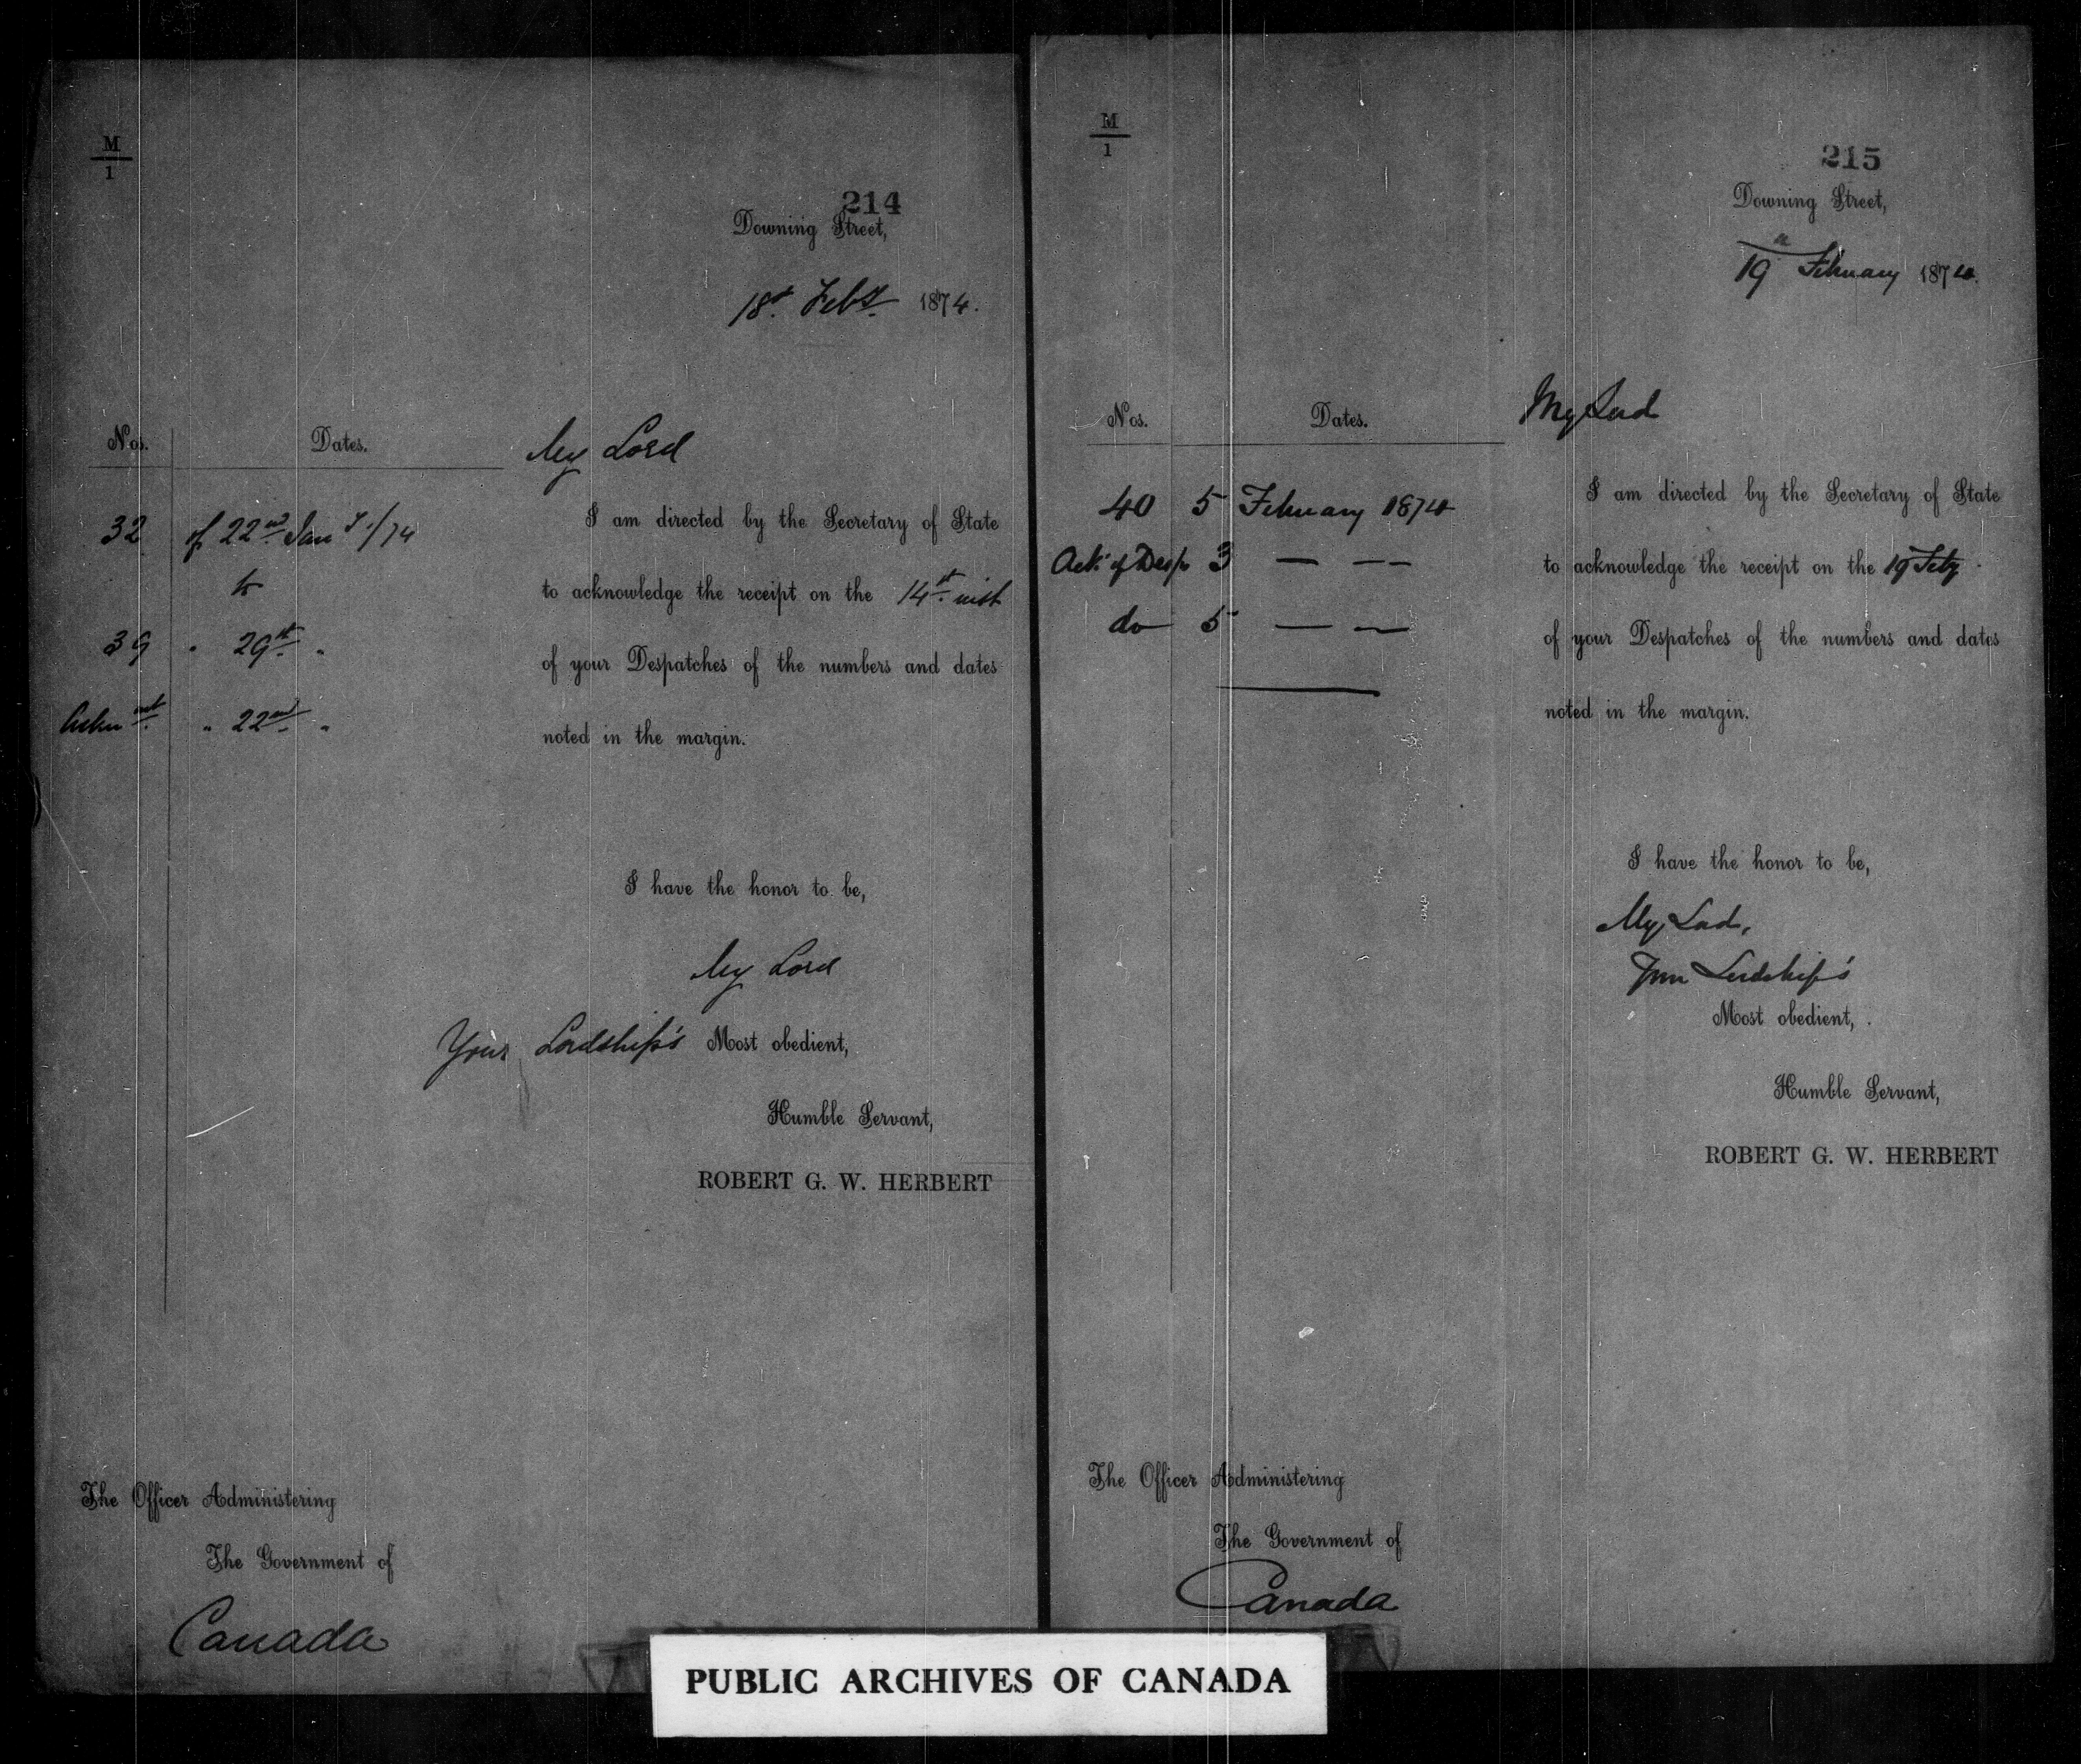 M
1
214
Downing Street,
18th Feby. 1874.
Nos. Dates.
My Lord
32 of 22nd Jany/74
to
39 " 29th "
" 22nd "
I am directed by the Secretary of State
to acknowledge the receipt on the 14th inst
of your Despatches of the numbers and dates
noted in the margin.
I have the honor to be,
My Lord
Your Lordship's Most obedient,
Humble Servant,
ROBERT G. W. HERBERT
The Officer Administering
The Government of
Canada
M
1
215
Downing Street,
19 February 1874.
Nos. Dates.
My Lord
40 5 February 1874
Ack: of Desp 3 — — —
do 5 — —
I am directed by the Secretary of State
to acknowledge the receipt on the 19 Feby
of your Despatches of the numbers and dates
noted in the margin.
I have the honor to be,
My Lord,
Your Lordship's
Most obedient,
Humble Servant,
ROBERT G. W. HERBERT
The Officer Administering
The Government of
Canada
PUBLIC ARCHIVES OF CANADA